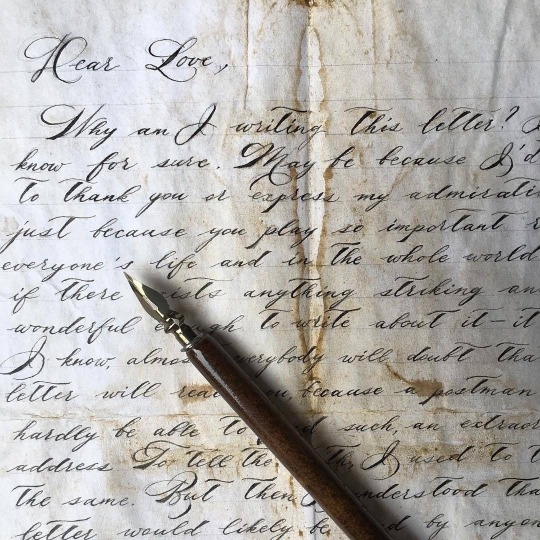 Dear Love,
Why an I writing this letter?
know for sure. May be because I'd
to thank you or express my admirati
just because you play so important r
everyone's life and in the whole world
if there ists anything striking an
wonderful en gh to write about it - it
I know, almos verybody will doubt tha
letter will reac ou, because a postman
hardly be able to d such, an extraor
address. To tell the th, I used to t
the same. But then nderstood tha
letter would likely be d by anyon